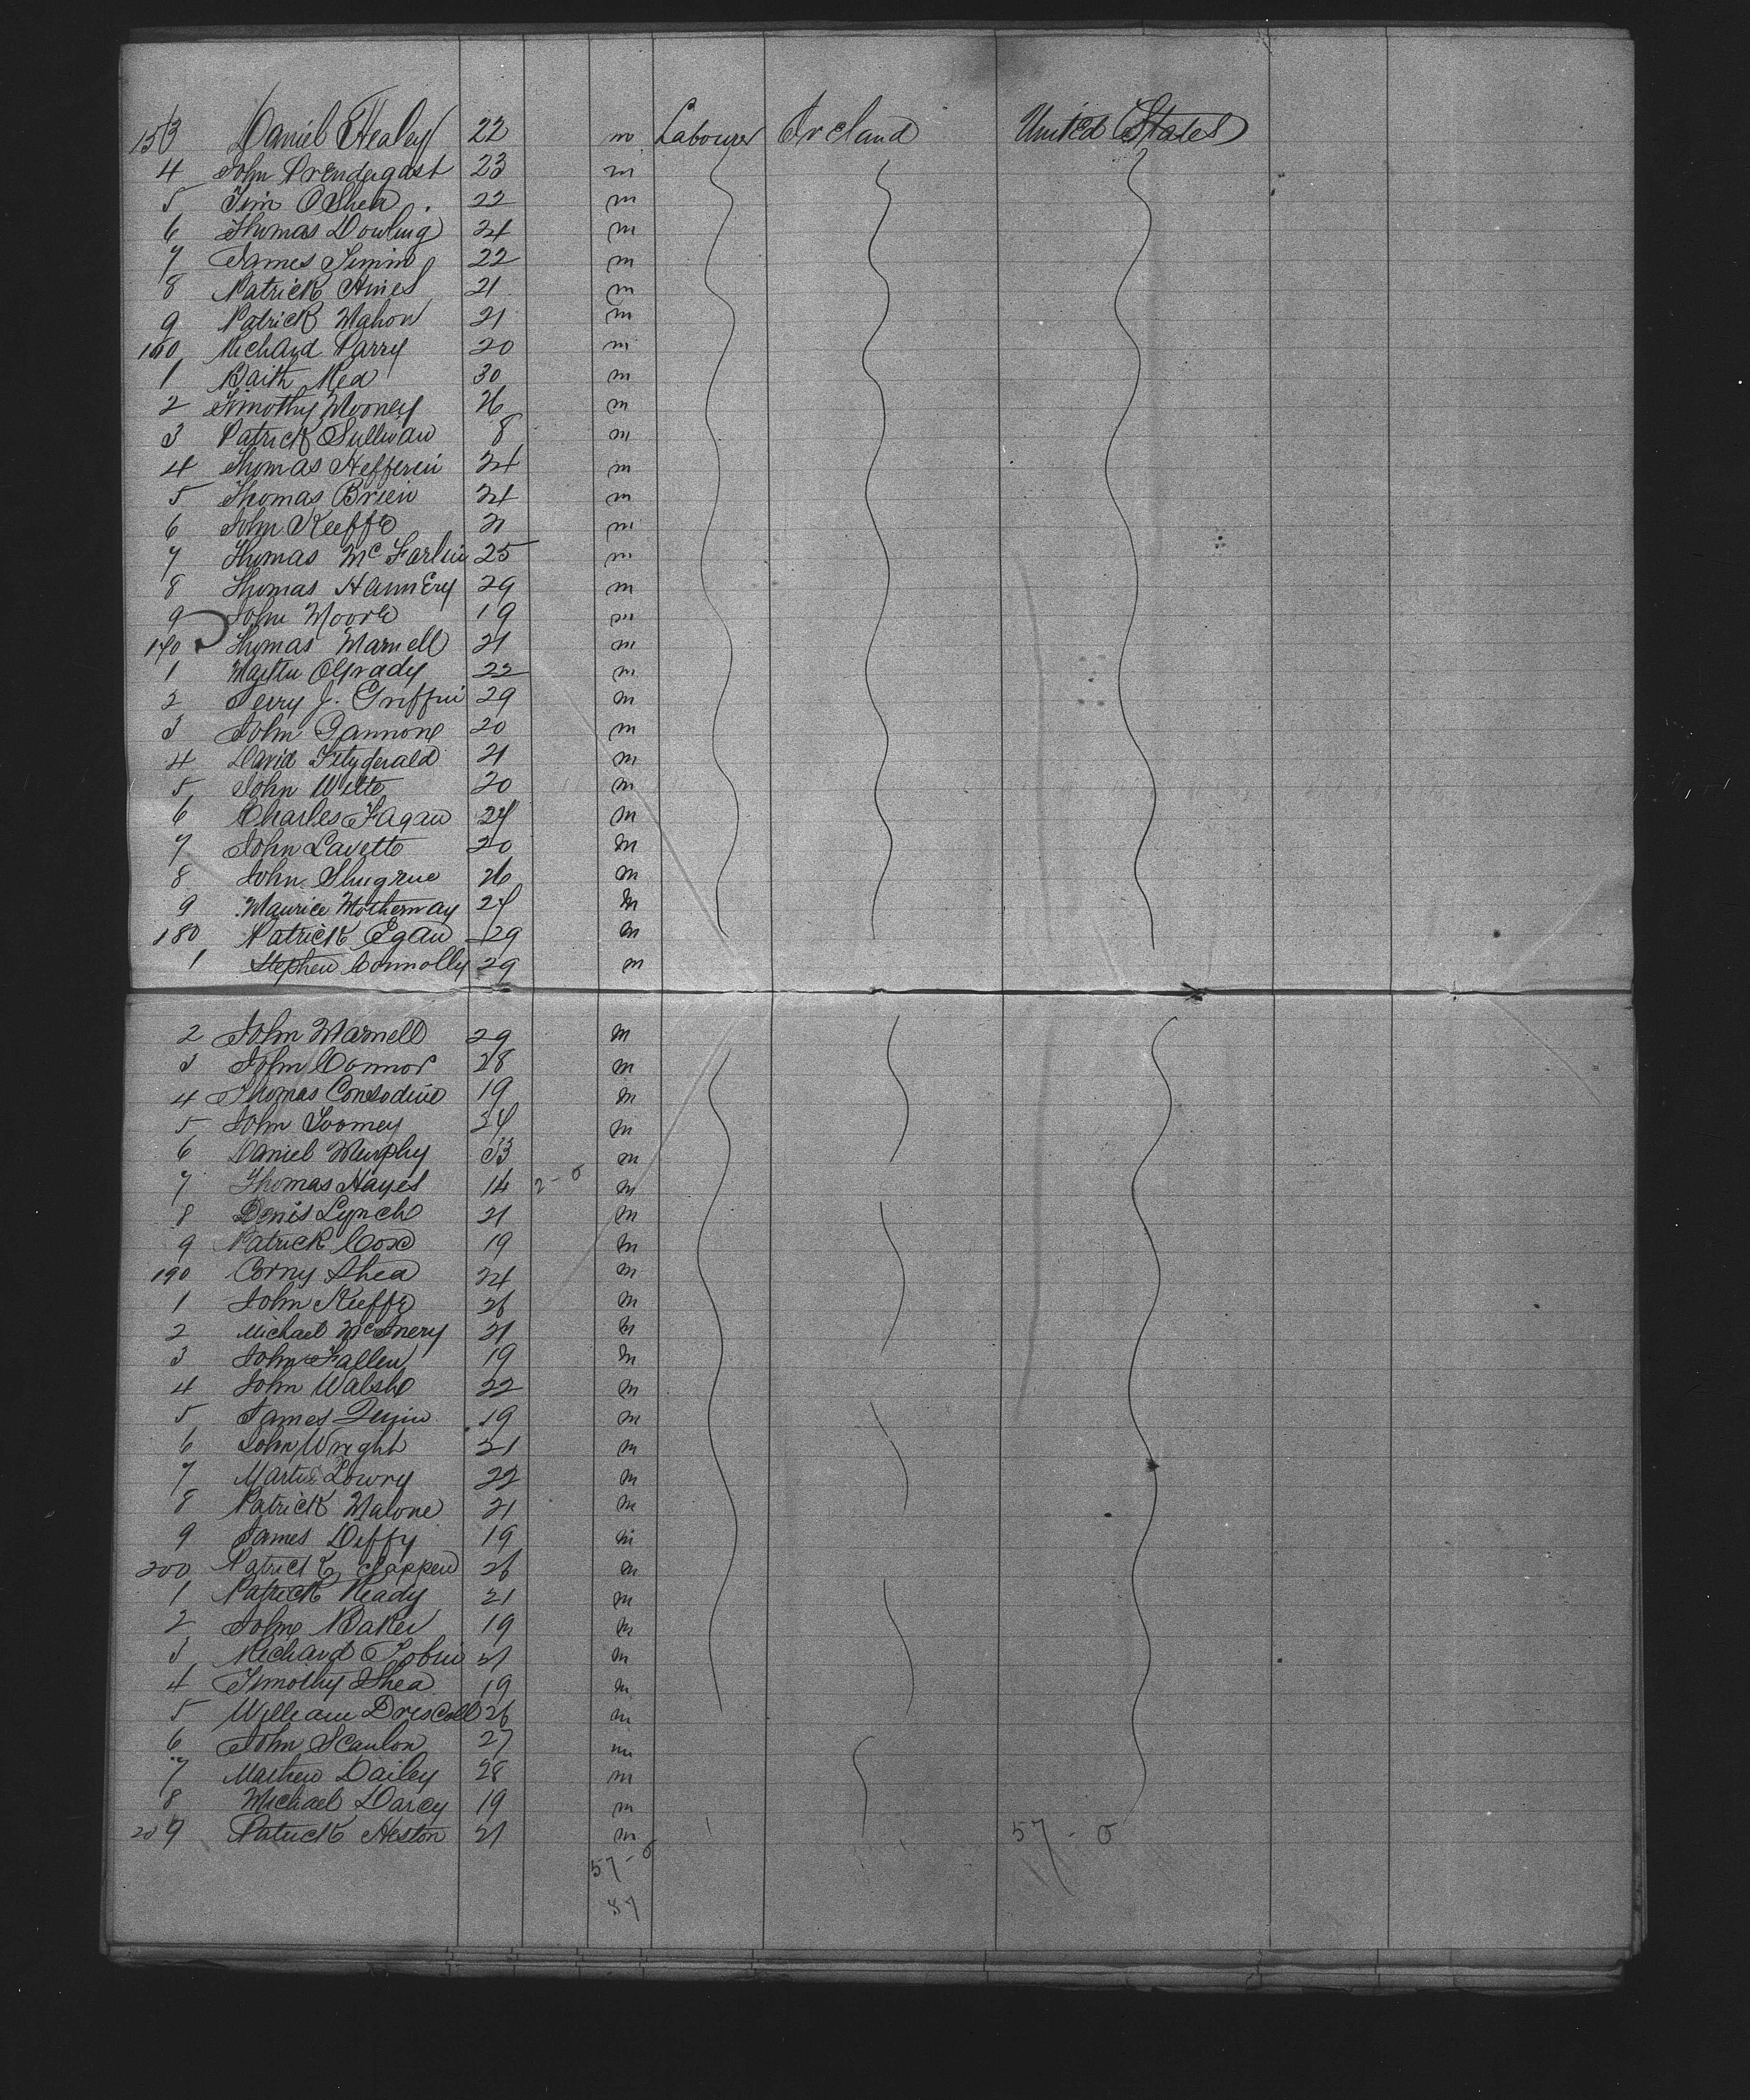 153 Daniel Healey 22 m Labourer Ireland United States
4 John Prendergast 23 m
5 Tim O Shea 22 m
6 Thomas Dowling 24 m
7 James 22 m
8 Patrick Hines 21 m
9 Patrick Mahon 21 m
160 Richard Parry 20 m
1 Rea 30 m
2 Timothy Mooney 26 m
3 Patrick Sullivan 8 m
4 Thomas Hefferin 24 m
5 Thomas Brien 24 m
6 John Keeffe 21 m
7 Thomas Mc Farlin 25 m
8 Thomas Hannery 29 m
9 John Moore 19 m
170 Thomas Marnell 21 m
1 O Grady 22 m
2 J. Griffin 29 m
3 John Gannone 20 m
4 David Fitzgerald 21 m
5 John Witte 20 m
6 Charles Fagan 24 m
7 John Lavette 20 m
8 John Shugrue 26 m
9 Maurice Motherway 24 m
180 Patrick Egan 29 m
1 Stephen Connolly 29 m
2 John Marnell 29 m
3 John Connor 28 m
4 Thomas Consodine 19 m
5 John Toomey 24 m
6 Daniel Murphy 33 m
7 Thomas Hayes 14 2-0 m
8 Denis Lynch 21 m
9 Patrick Cox 19 m
190 Corny Shea 24 m
1 John Keeffe 26 m
2 Michael McInery 21 m
3 John Fallen 19 m
4 John Walsh 22 m
5 James Quinn 19 m
6 John Wright 21 m
7 Martin Lowry 22 m
8 Patrick Malone 21 m
9 James Diffy 19 m
200 Patrick Clappen 26 m
1 Patrick Ready 21 m
2 John Baker 19 m
3 Richard Tobin 21 m
4 Timothy Shea 19 m
5 William Driscoll 26 m
6 John Scanlon 27 m
7 Mathew Dailey 28 m
8 Michael Darcy 19 m
209 Patrick Heston 21 m 57-0
57-0
57